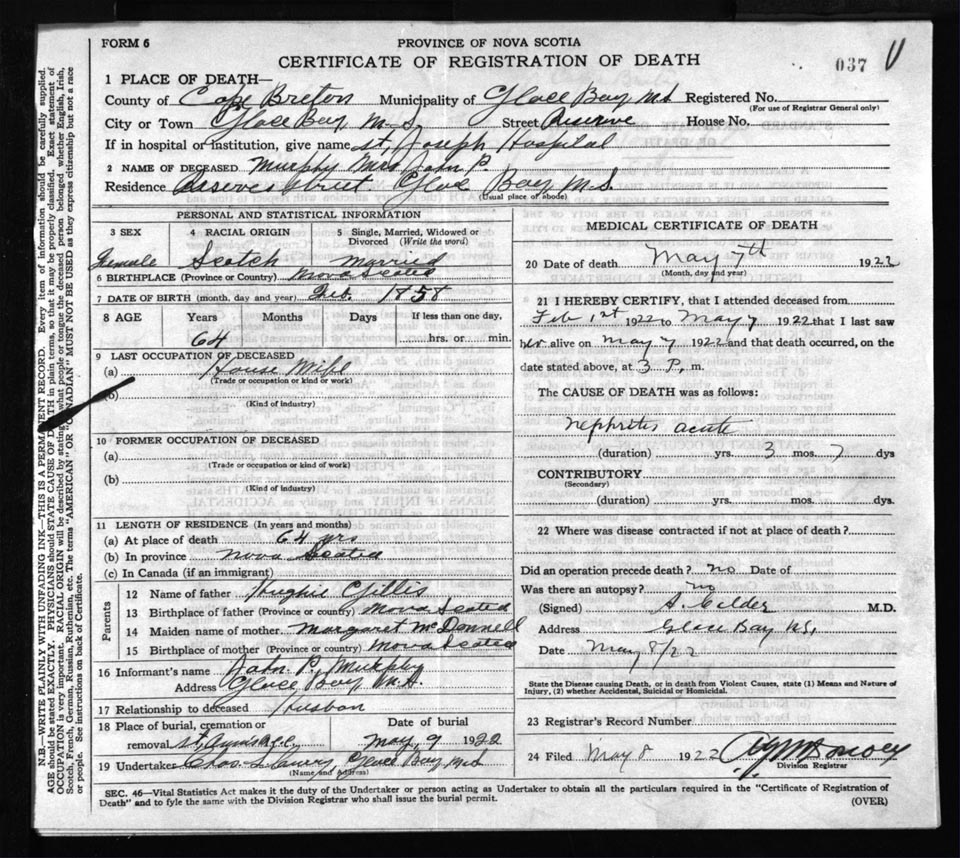 FORM 6
PROVINCE OF NOVA SCOTIA
CERTIFICATE OF REGISTRATION OF DEATH
037
1 PLACE OF DEATH—
County of Cape Breton Municipality of Glace Bay N.S Registered No.
(For use of Registrar General only)
City or Town Glace Bay N.S. Street Reserve House No.
If in hospital or institution, give name St. Joseph Hospital
2 NAME OF DECEASED Murphy Mrs John P.
Residence Reserve Street Glace Bay N.S.
(Usual place of abode)
PERSONAL AND STATISTICAL INFORMATION
3 SEX 4 RACIAL ORIGIN 5 Single, Married, Widowed or Divorced (Write the word)
Female Scotch Married
6 BIRTHPLACE (Province or Country) Nova Scotia
7 DATE OF BIRTH (month, day and year) Feb. 1858
8 AGE Years Months Days If less than one day,
64 hrs. or min.
9 LAST OCCUPATION OF DECEASED
(a) House Wife
(Trade or occupation or kind or work)
(b)
(Kind of industry)
10 FORMER OCCUPATION OF DECEASED
(a)
(Trade or occupation or kind or work)
(b)
(Kind of industry)
11 LENGTH OF RESIDENCE (In years and months)
(a) At place of death 64 yrs
(b) In province Nova Scotia
(c) In Canada (if an immigrant)
Parents
12 Name of father Hughie Gillis
13 Birthplace of father (Province or country) Nova Scotia
14 Maiden name of mother Margaret McDonnell
15 Birthplace of mother (Province or country) Nova Scotia
16 Informant's name John P. Murphy
Address Glace Bay, N.S.
17 Relationship to deceased Husbon
18 Place of burial, cremation or removal Date of burial
May, 9 1922
19 Undertaker Glace Bay N.S
(Name and Address)
MEDICAL CERTIFICATE OF DEATH
20 Date of death May 7th 1922
(Month, day and year)
21 I HEREBY CERTIFY, that I attended deceased from
Feb 1st 1922 to May 7 1922 that I last saw
her alive on May 7 1922 and that death occurred, on the
date stated above, at 3 P. m.
The CAUSE OF DEATH was as follows:
Nephritis acute
(duration) yrs. 3 mos. 7 dys
CONTRIBUTORY
(Secondary)
(duration) yrs. mos. dys.
22 Where was disease contracted if not at place of death?
Did an operation precede death? no Date of
Was there an autopsy? no
(Signed) A. Calder M.D.
Address Glace Bay N.S.
Date May 8/22
State the Disease causing Death, or in death from Violent Causes, state (1) Means and Nature of
Injury, (2) whether Accidental, Suicidal or Homicidal.
23 Registrar's Record Number
24 Filed May 8 1922
Division Registrar
SEC. 46—Vital Statistics Act makes it the duty of the Undertaker or person acting as Undertaker to obtain all the particulars required in the "Certificate of Registration of
Death" and to fyle the same with the Division Registrar who shall issue the burial permit.
(OVER)
N.B.—WRITE PLAINLY WITH UNFADING INK—THIS IS A PERMANENT RECORD. Every item of information should be carefully supplied.
AGE should be stated EXACTLY. PHYSICIANS should STATE CAUSE OF DEATH in plain terms, so that it may be properly classified. Exact statement of
OCCUPATION is very important. RACIAL ORIGIN will be described by stating what people or tongue the deceased person belonged whether English, Irish,
Scotch, French, German, Russian, Ruthenian, etc. The terms "AMERICAN" OR "CANADIAN" MUST NOT BE USED as they express citizenship but not a race
or people. See instructions on back of Certificate.